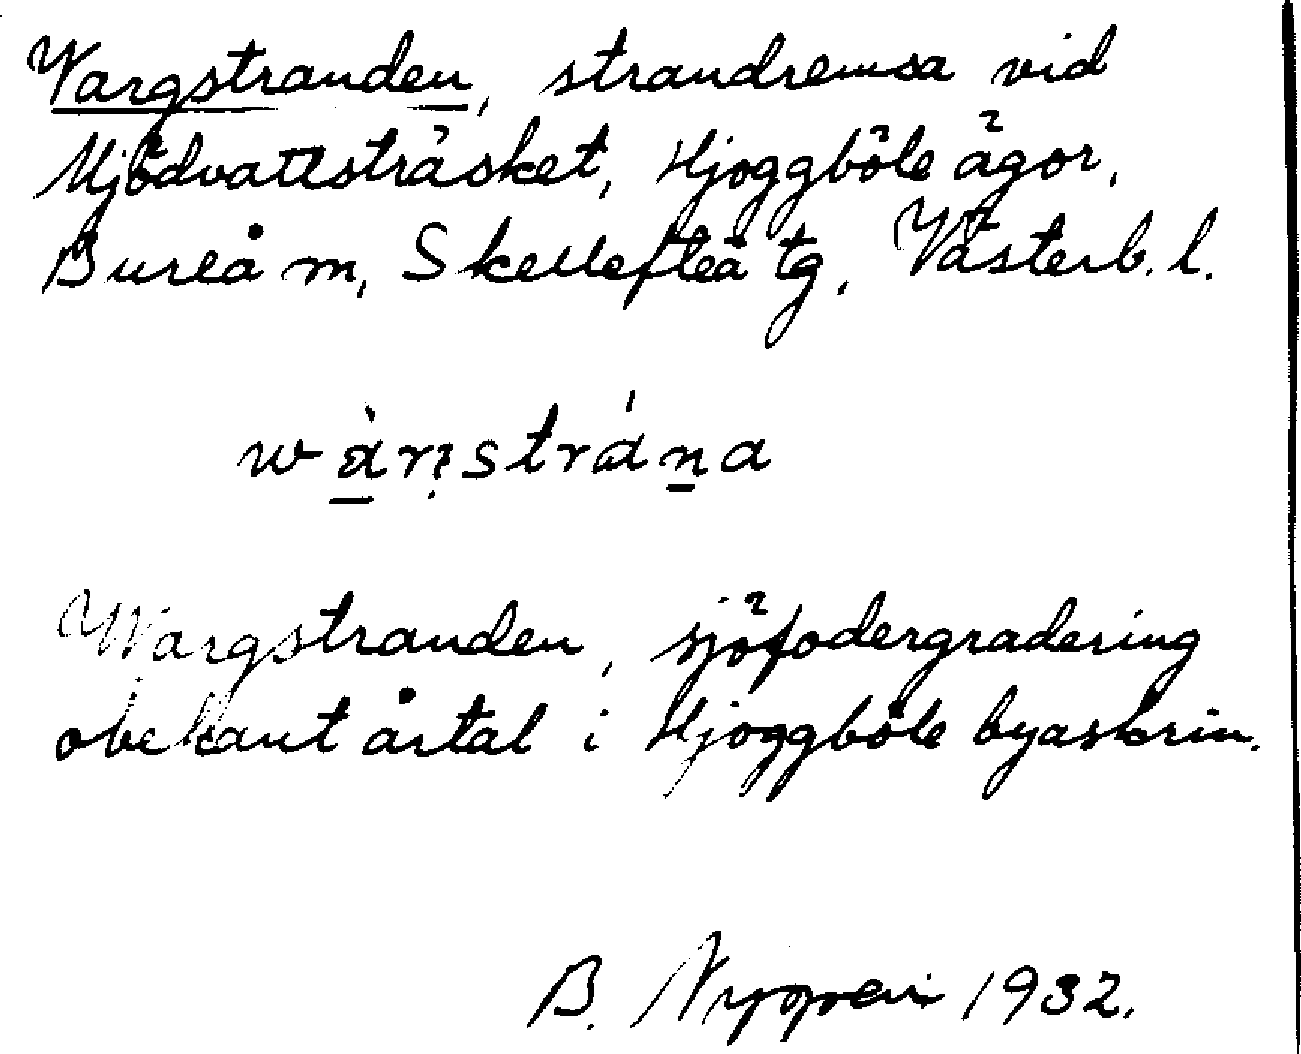 Vargstranden, strandremsa vid
Mjödvattsträsket, Hjoggböle ägor,
Bureå m, Skellefteå tg, Västerb. l.
Wargstranden, sjöfodergradering
obekant årtal i Hjoggböle byaskrin.
B. 1932.